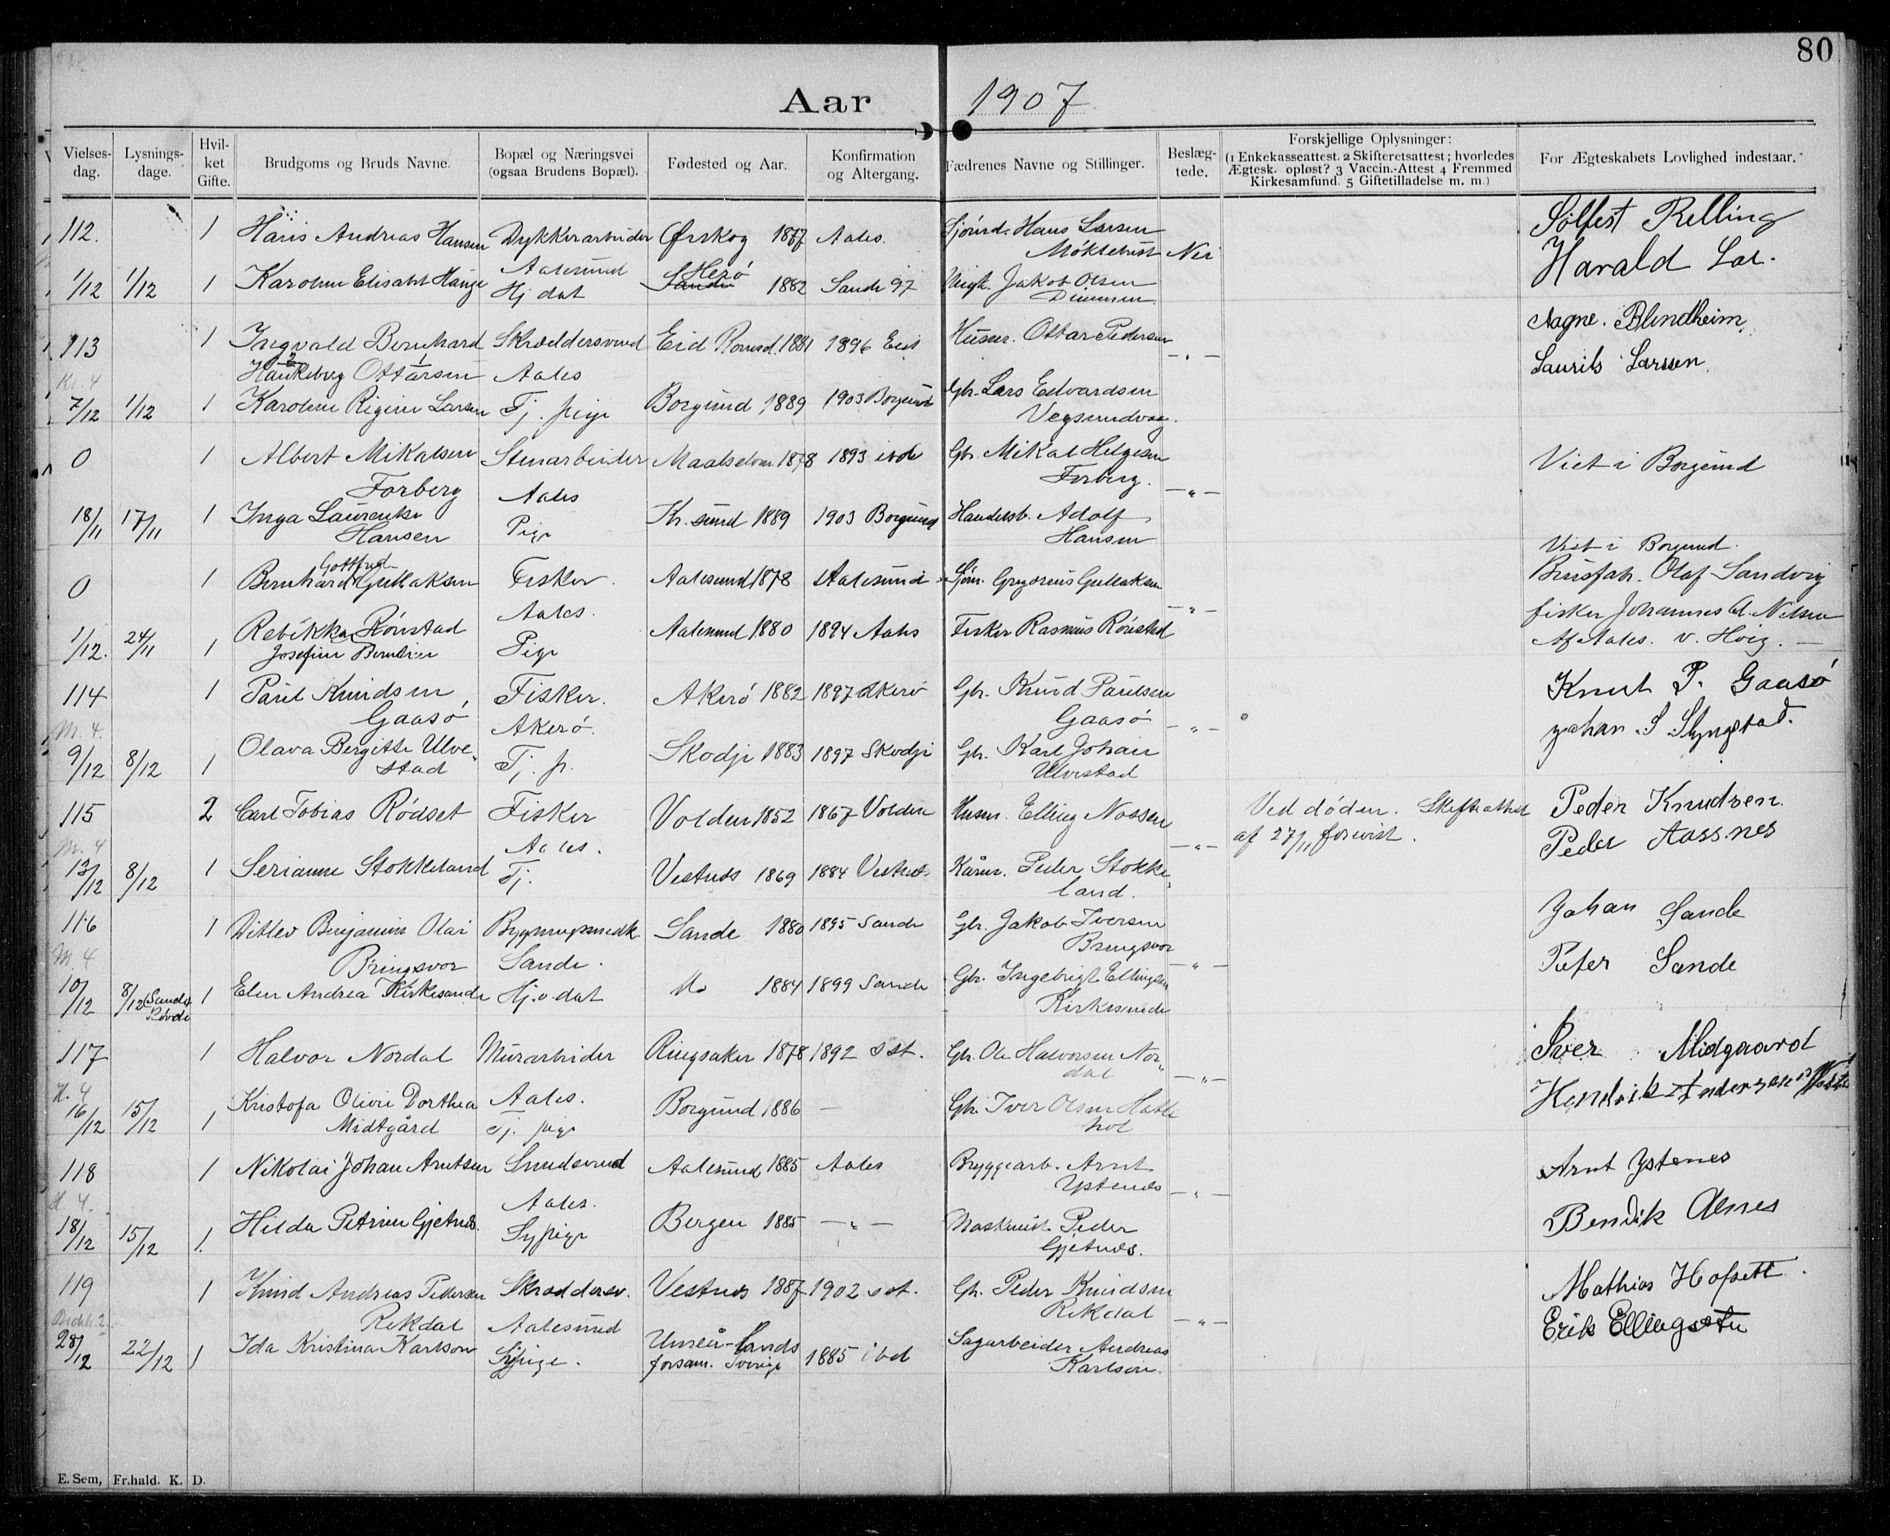 80
Aar 1907
Vielses-dag. Lysnings-dage. Hvil-ket Gifte. Brudgoms og Bruds Navne. Bopæl og Næringsvei (ogsaa Brudens Bopæl). Fødested og Aar. Konfirmation og Altergang. Fædrenes Navne og Stillinger. Beslæg-tede. Forskjellige Oplysninger: (1 Enkekasseattest. 2 Skifteretsattest; hvorledes Ægtesk. opløst? 3 Vaccin.-Attest 4 Fremmed Kirkesamfund. 5 Giftetilladelse m. m.) For Ægteskabets Lovlighed indestaar.
112. 1 Hans Andreas Hansen Dykkerarbeider Ørskog 1887 Aales. Sjömd. Hans Larsen Nei Sølfest Relling
Aalesund Møklebust Harald Lar.
1/12 1/12 1 Karoline Elisabet Hauge Hj dat Sande Herö 1882 Sande 97 Jakob Olsen
113 1 Ingvald Bernhard Skræddersvend Eid Romsd. 1881 1896 Eid Husm. Ottar Pedersen Aagne. Blindheim
Haukeberg Ottarsen Aales -"- Laurits Larsen.
7/12 1/12 1 Karoline Regine Larsen Tj. pige Borgund 1889 1903 Borgund Gbr. Lars Edvardsen
Vegsundvaag.
0 1 Albert Mikalsen Stenarbeider Maalselven 1878 1893 ibd Gbr. Mikal Helgesen Viet i Borgund
Forberg Aales Forberg. -"-
18/11 17/11 1 Inga Laurense Pige Kr.sund 1889 1903 Borgund Handelsb. Adolf
Hansen Hansen
Gottfred Viet i Borgund.
0 1 Bernhard Gullaksen Fisker. Aalesund 1878 Aalesund Sjöm. Gregorius Gullaksen Olaf Sandvig
Aales. -"- fisker Johannes A. Nilsen
1/12. 24/11 1 Rebekka Rønstad Pige Aalesund 1880 1894 Aales Fisker Rasmus Rønstad Af Aales. v. Høeg. —
Josefine
114 1 Paul Knudsen Fisker. Akerö 1882 1897 Akerö Gbr. Knud Paulsen Knut P. Gaasö
M. 4. Gaasö Akerö. Gaasö -"- Johan S Slyngstad.
9/12 8/12 1 Olava Bergitte Ulve- Tj. p. Skodje 1883 1897 Skodje Gbr. Karl Johan
stad Ulvestad
115 2 Carl Tobias Rødset Fisker Volden 1852 1867 Volden Husm. Elling Nossen Ved döden. Skifteattest Peder Knudsen
M. 4 Aales. -"- af 27/11 forevist. Peder Aassnes
13/12 8/12 1 Serianne Stokkeland Tj. Vestnes 1869 1884 Vestnes Kårm. Peder Stokke-
land.
116 1 Ditlev Benjamin Olai Bygningssnedk. Sande 1880 1895 Sande Gbr. Jakob Iversen Johan Sande
M. 4 Bringsvor Sande. Bringsvor -"- Peter Sande
10/12 8/12 Sande Røvde 1 Elen Andrea Kirkesande Hj. v. dat 1884 1899 Sande Gbr. Ingebrigt Ellingsen
Kirkesande
117 1 Halvor Nordal Murarbeider Ringsaker 1878 1892 sst. Gbr. Ole Halvorsen Nor- Iver Midgaard
H. 4 Aales. dal -"-
16/12 15/12 1 Kristofa Olive Dorthea Tj. pige Borgund 1886 — Gbr. Iver Olsen Hatle-
Midtgård hol
118 1 Nikolai Johan Arntsen Smedsvend Aalesund 1885 Aales Bryggearb. Arnt Arnt Ystenes
H 4. Aales. Ystenes -"- Bendik Alnes
18/12 15/12 1. Hilda Petrine Gjetnes. Sypige Bergen 1885 -"- Maskinist Peder
Gjetnes.
119 1 Knud Andreas Pedersen Skræddersv. Vestnes 1887 1902 sst. Gbr. Peder Knudsen Mathias Hofsett.
Rekdal Aalesund Rekdal -"- Erik Ellingsetn
28/12 22/12 1 Ida Kristina Karlson Sypige. Umeå-Lands 1885 ibd Sagarbeider Andreas
forsam. Sverige Karlson.
E. Sem, Fr.hald. K. D.